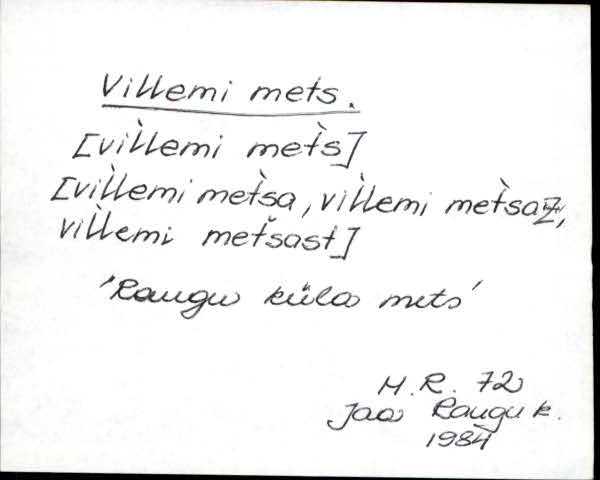 Villemi mets.
[vil̀lemi met̀s]
[vil̀lemi met̀sa, vil̀lemi met̀saZ,
vil̀lemi met̀sast]
'Raugu küla mets'
H. R. 72
Jaa Raugu k.
1984